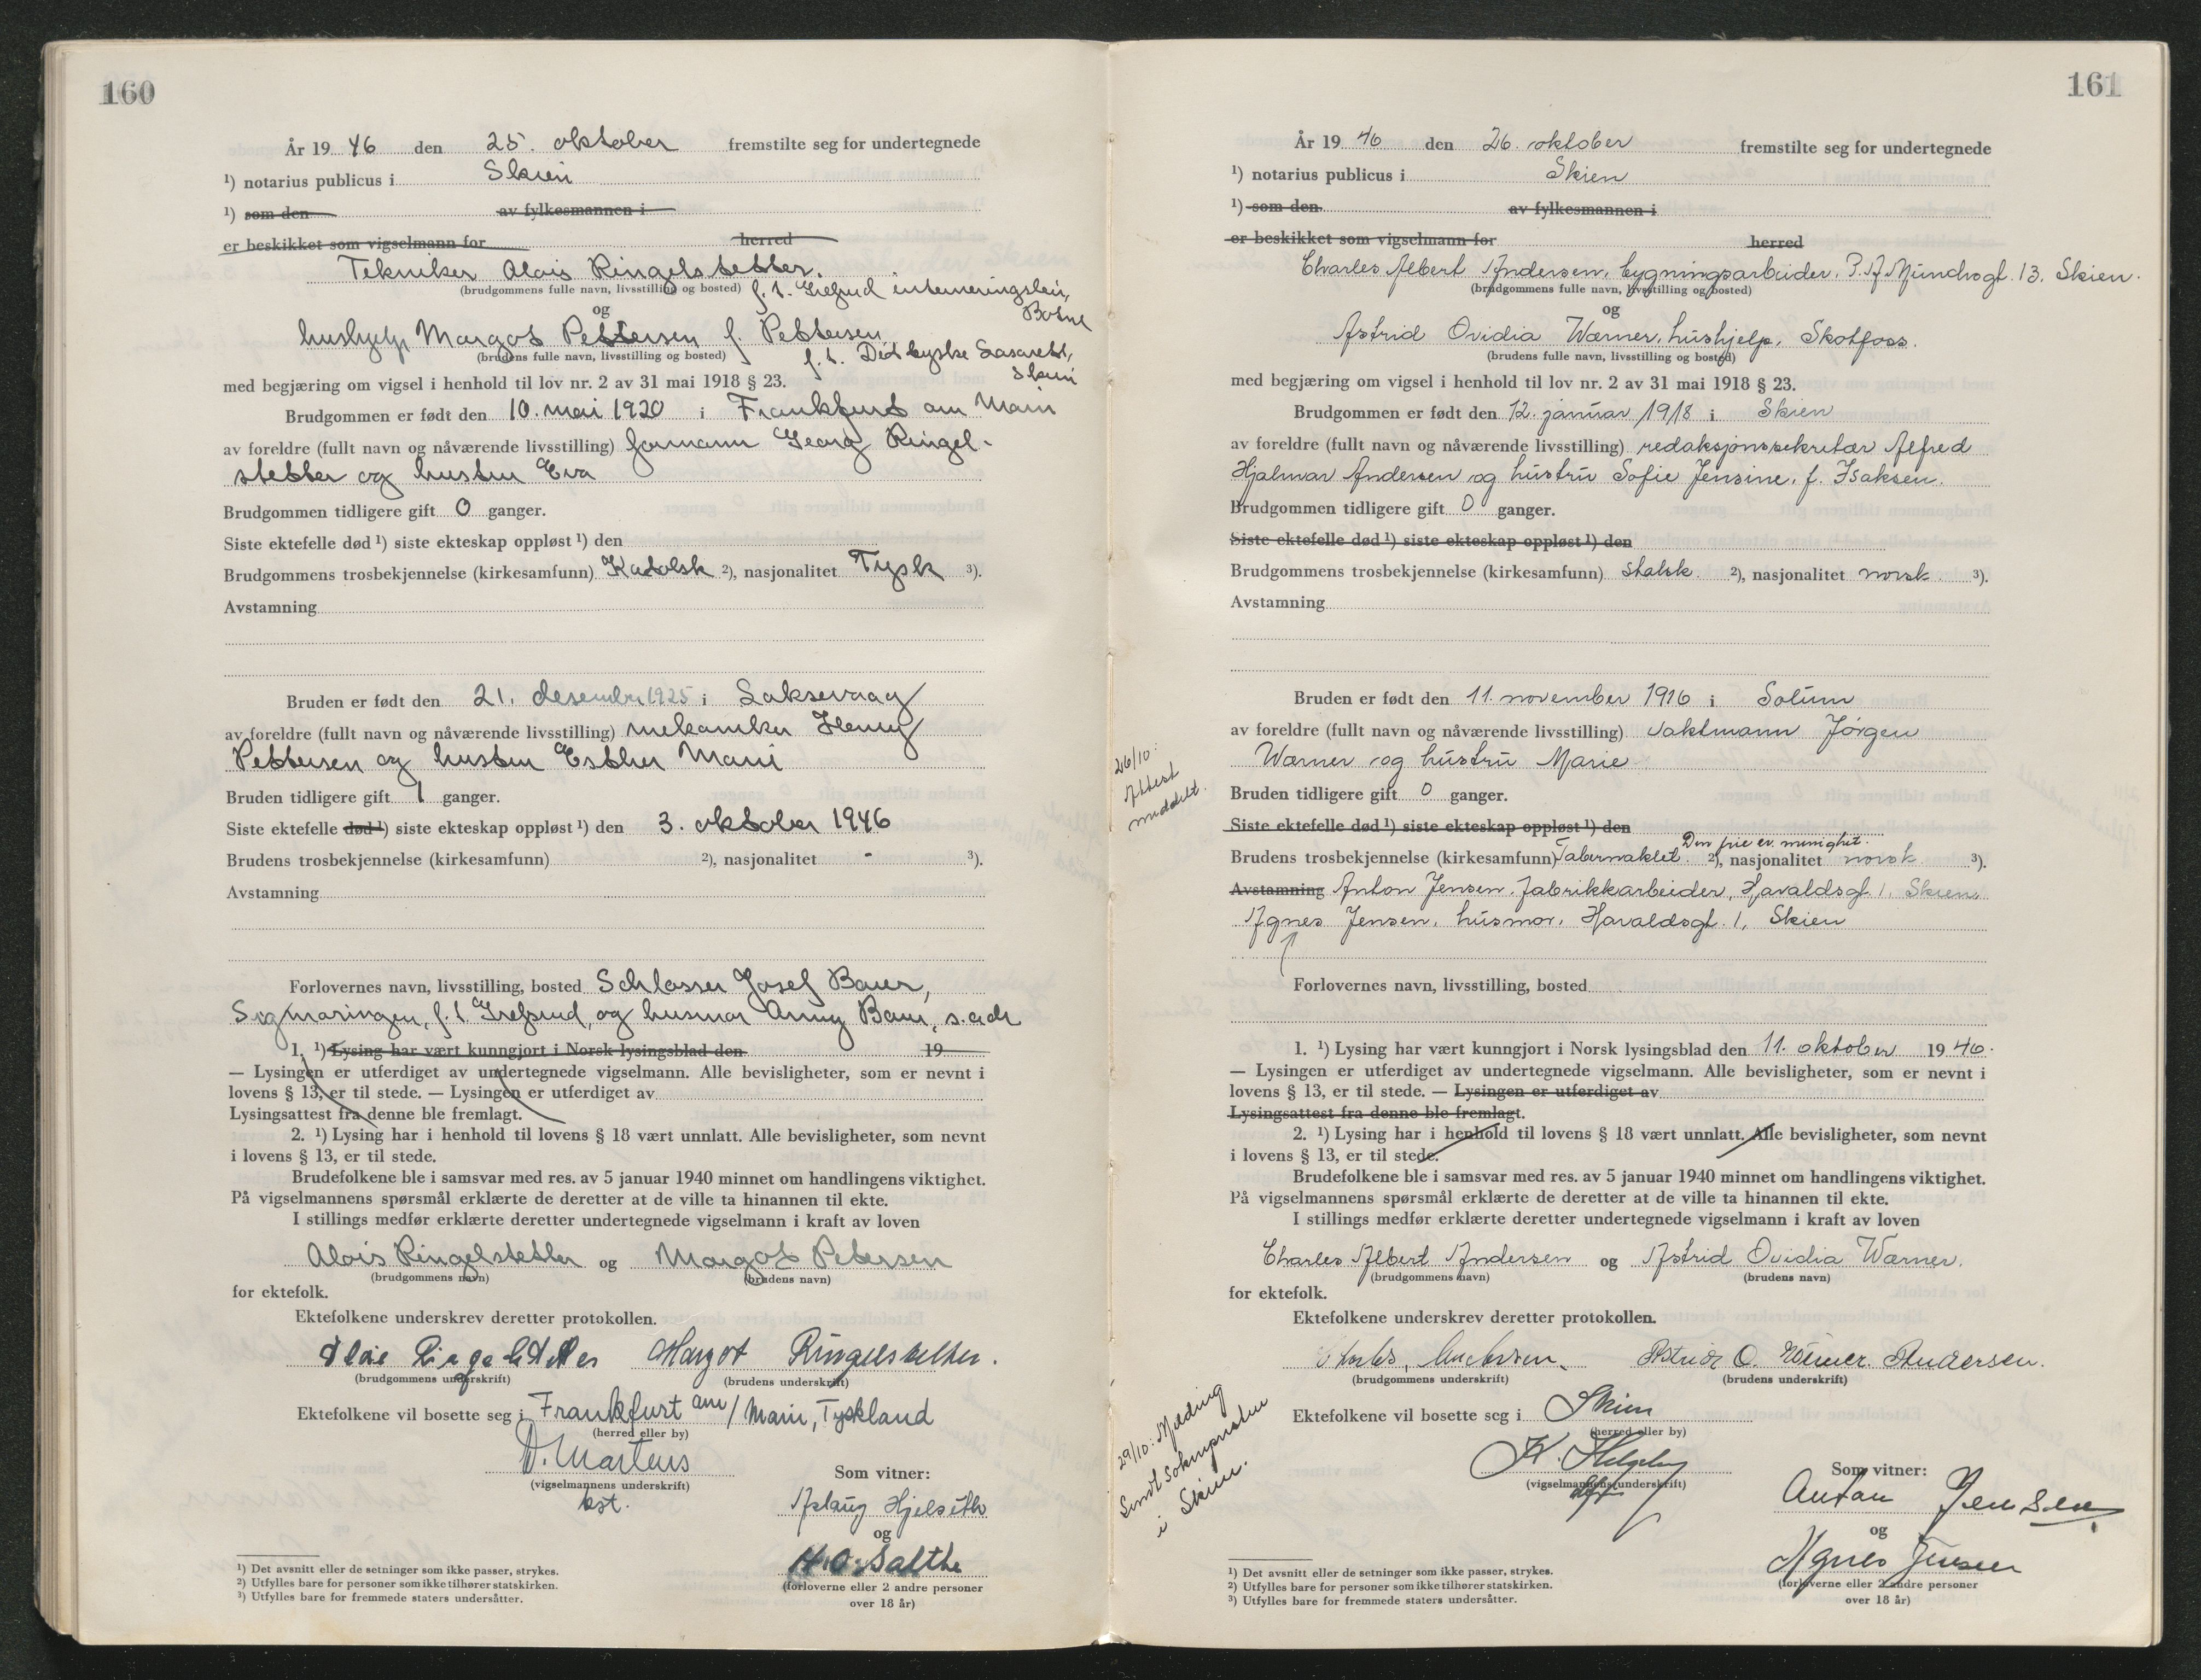 160
År 19 46 den 25. oktober fremstilte seg for undertegnede
¹) notarius publicus i Skien
¹) som den av fylkesmannen i
er beskikket som vigselmann for herred
Tekniker Alois Ringelstetter.
(brudgommens fulle navn, livsstilling og bosted) f. t. Grefsrud interneringsleir,
Botne
og
hushjelp Margot Pettersen f. Pettersen
(brudens fulle navn, livsstilling og bosted) f. t. Det tyske Lasarett,
Skien
med begjæring om vigsel i henhold til lov nr. 2 av 31 mai 1918 § 23.
Brudgommen er født den 10. mai 1920 i Frankfurt am Main
av foreldre (fullt navn og nåværende livsstilling) formann Georg Ringel-
stetter og hustru Eva
Brudgommen tidligere gift 0 ganger.
Siste ektefelle død ¹) siste ekteskap oppløst ¹) den
Brudgommens trosbekjennelse (kirkesamfunn) Katolsk ²), nasjonalitet Tysk ³).
Avstamning
Bruden er født den 21. desember 1925 i Laksevaag
av foreldre (fullt navn og nåværende livsstilling) mekaniker Henry
Pettersen og hustru Esther Marie
Bruden tidligere gift 1 ganger.
Siste ektefelle død ¹) siste ekteskap oppløst ¹) den 3. oktober 1946
Brudens trosbekjennelse (kirkesamfunn) ²), nasjonalitet - ³).
Avstamning
Forlovernes navn, livsstilling, bosted Schlosser Josef Bauer,
Sigmaringen, f. t. Grefsrud, og husmor Anny Bauer, s. adr
1. ¹) Lysing har vært kunngjort i Norsk lysingsblad den 19
— Lysingen er utferdiget av undertegnede vigselmann. Alle bevisligheter, som er nevnt i
lovens § 13, er til stede. — Lysingen er utferdiget av
Lysingsattest fra denne ble fremlagt.
2. ¹) Lysing har i henhold til lovens § 18 vært unnlatt. Alle bevisligheter, som nevnt
i lovens § 13, er til stede.
Brudefolkene ble i samsvar med res. av 5 januar 1940 minnet om handlingens viktighet.
På vigselmannens spørsmål erklærte de deretter at de ville ta hinannen til ekte.
I stillings medfør erklærte deretter undertegnede vigselmann i kraft av loven
Alois Ringelstetter og Margot Petersen
(brudgommens navn) (brudens navn)
for ektefolk.
Ektefolkene underskrev deretter protokollen.
Alois Ringelstetter Margot Ringelstetter.
(brudgommens underskrift) (brudens underskrift)
Ektefolkene vil bosette seg i Frankfurt am / Main, Tyskland
(herred eller by)
D. Martens
(vigselmannens underskrift)
kst.
Som vitner:
Aslaug Hjelseth
og
H. O. Salthe
(forloverne eller 2 andre personer
over 18 år)
¹) Det avsnitt eller de setninger som ikke passer, strykes.
²) Utfylles bare for personer som ikke tilhører statskirken.
³) Utfylles bare for fremmede staters undersåtter.
161
År 19 46 den 26. oktober fremstilte seg for undertegnede
¹) notarius publicus i Skien
¹) som den av fylkesmannen i
er beskikket som vigselmann for herred
Charles Albert Andersen, bygningsarbeider, P. A. Munchsgt. 13. Skien.
(brudgommens fulle navn, livsstilling og bosted)
og
Astrid Ovidia Wærner, hushjelp, Skotfoss.
(brudens fulle navn, livsstilling og bosted)
med begjæring om vigsel i henhold til lov nr. 2 av 31 mai 1918 § 23.
Brudgommen er født den 12. januar 1918 i Skien
av foreldre (fullt navn og nåværende livsstilling) redaksjonssekretær Alfred
Hjalmar Andersen og hustru Sofie Jensine, f. Isaksen.
Brudgommen tidligere gift 0 ganger.
Siste ektefelle død ¹) siste ekteskap oppløst ¹) den
Brudgommens trosbekjennelse (kirkesamfunn) statsk. ²), nasjonalitet norsk. ³).
Avstamning
Bruden er født den 11. november 1916 i Solum
av foreldre (fullt navn og nåværende livsstilling) vaktmann Jørgen
Wærner og hustru Marie
26/10:
Attest
meddelt.
Bruden tidligere gift 0 ganger.
Siste ektefelle død ¹) siste ekteskap oppløst ¹) den
Den frie ev. menighet.
Brudens trosbekjennelse (kirkesamfunn) Tabernaklet. ²), nasjonalitet norsk ³).
Avstamning Anton Jensen, fabrikkarbeider, Haraldsgt. 1. Skien.
Agnes Jensen, husmor, Haraldsgt. 1, Skien
Forlovernes navn, livsstilling, bosted
1. ¹) Lysing har vært kunngjort i Norsk lysingsblad den 11. oktober 19 46.
— Lysingen er utferdiget av undertegnede vigselmann. Alle bevisligheter, som er nevnt i
lovens § 13, er til stede. — Lysingen er utferdiget av
Lysingsattest fra denne ble fremlagt.
2. ¹) Lysing har i henhold til lovens § 18 vært unnlatt. Alle bevisligheter, som nevnt
i lovens § 13, er til stede.
Brudefolkene ble i samsvar med res. av 5 januar 1940 minnet om handlingens viktighet.
På vigselmannens spørsmål erklærte de deretter at de ville ta hinannen til ekte.
I stillings medfør erklærte deretter undertegnede vigselmann i kraft av loven
Charles Albert Andersen og Astrid Ovidia Wærner.
(brudgommens navn) (brudens navn)
for ektefolk.
Ektefolkene underskrev deretter protokollen.
Charles. Andersen. Astrid O. Wærner. Andersen.
(brudgommens underskrift) (brudens underskrift)
29/10: Melding
sendt Soknepresten
i Skien.
Ektefolkene vil bosette seg i Skien
(herred eller by)
K. Helgeby
(vigselmannens underskrift)
Som vitner:
Anton Jensen
og
Agnes Jensen
(forloverne eller 2 andre personer
over 18 år)
¹) Det avsnitt eller de setninger som ikke passer, strykes.
²) Utfylles bare for personer som ikke tilhører statskirken.
³) Utfylles bare for fremmede staters undersåtter.